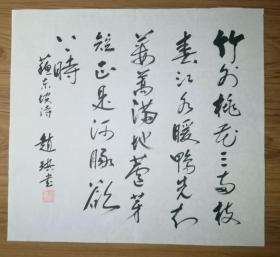 竹外桃花三两枝
春江水暖鴨先知
蒌蒿满地蘆芽
短正是河豚欲
上時
蘇东坡诗 趙 书